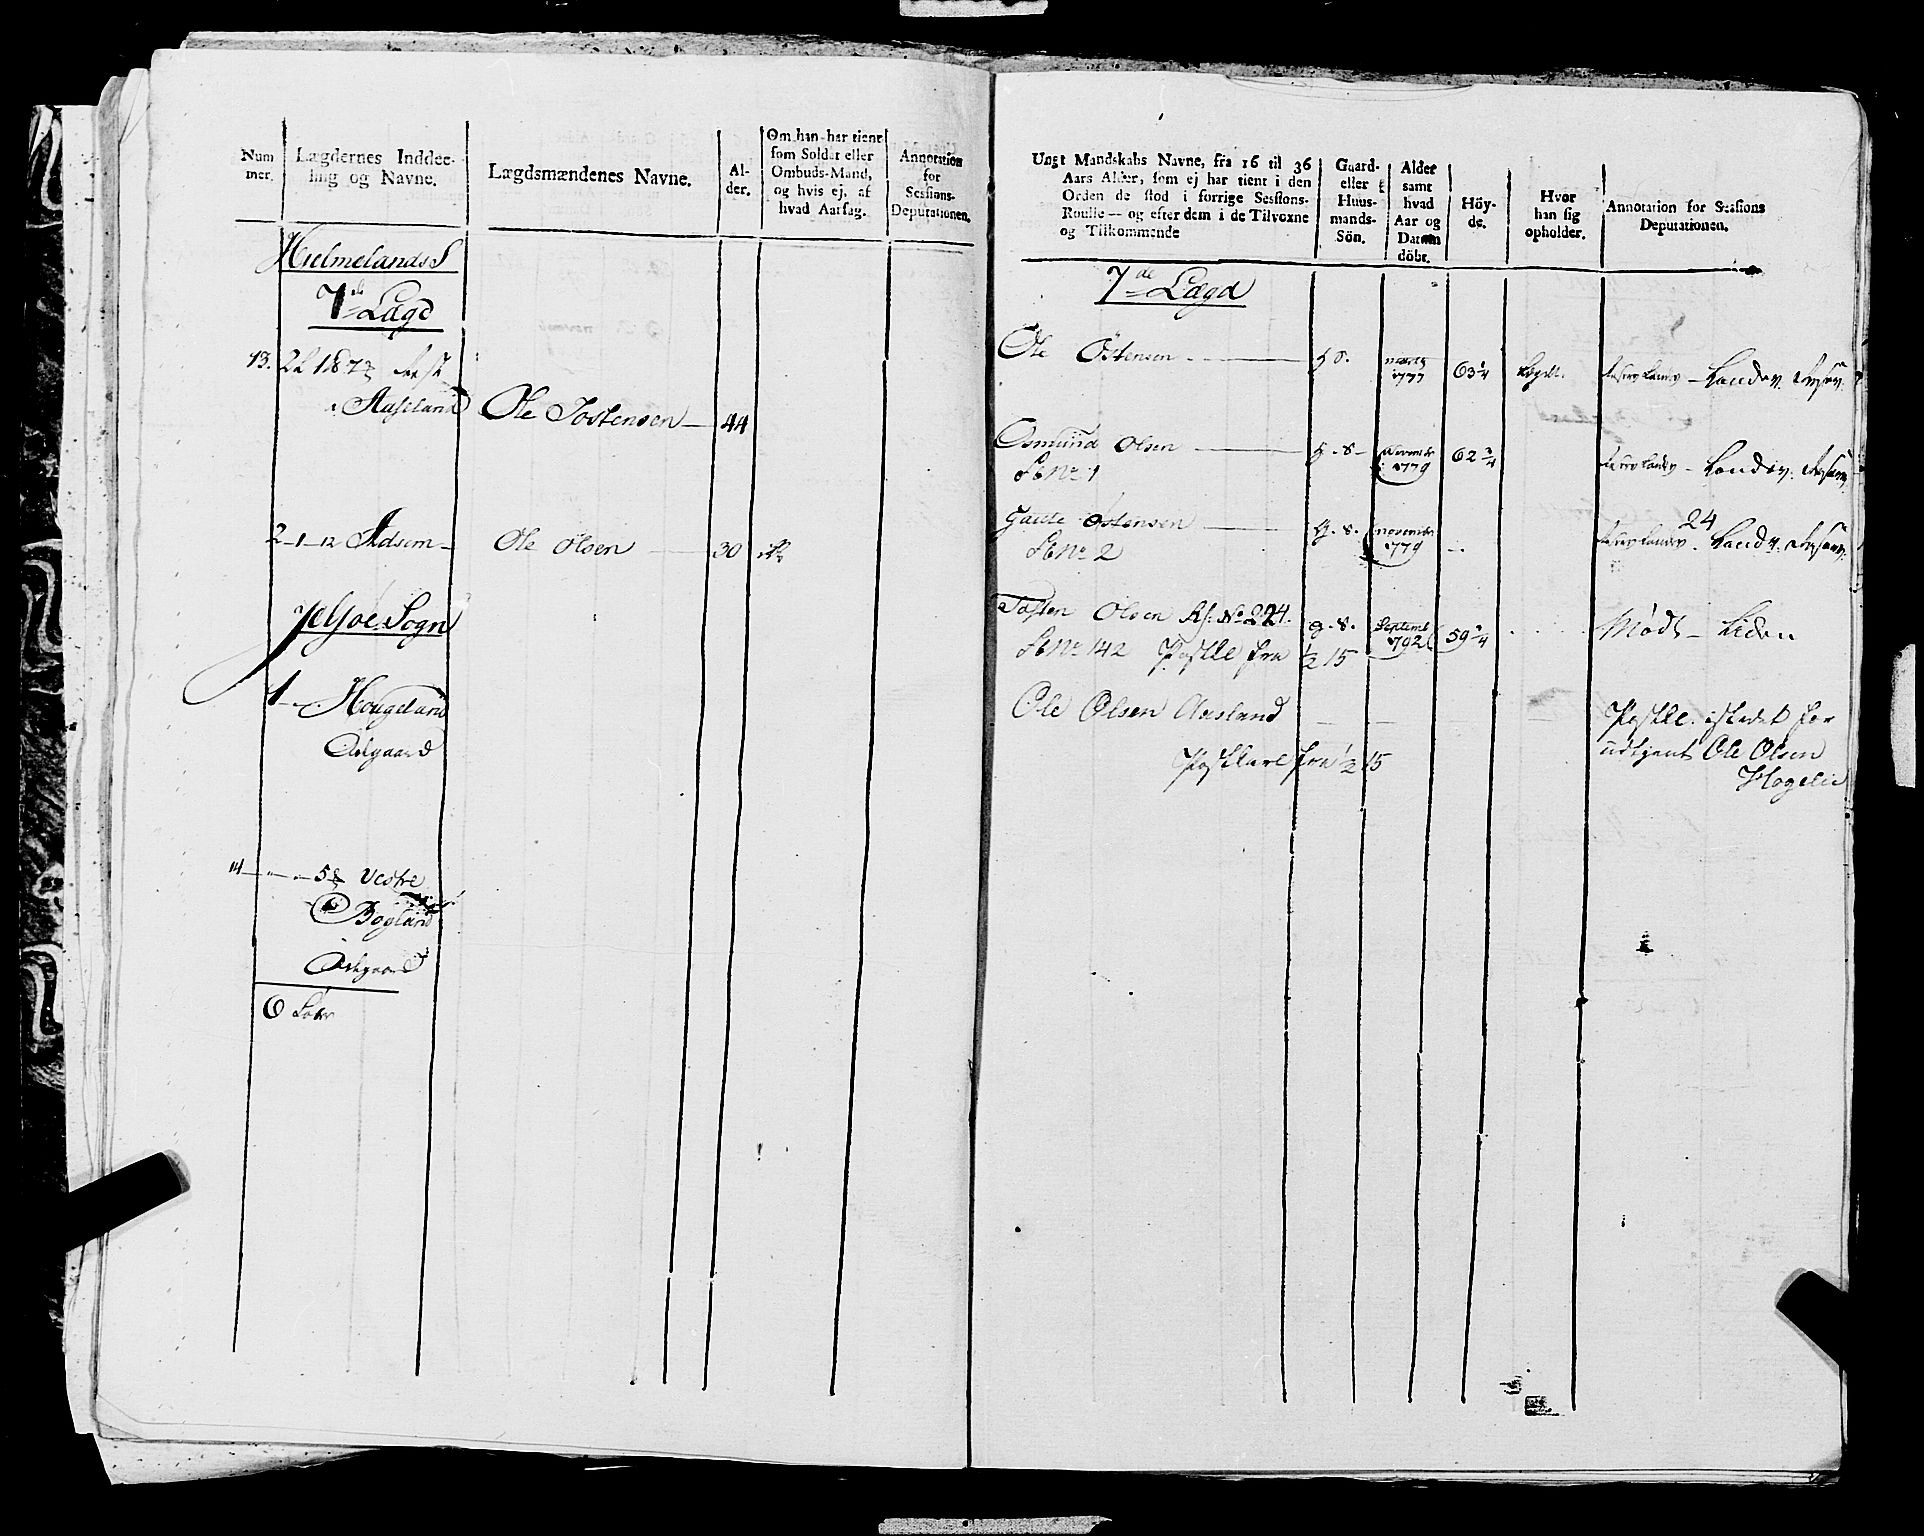 Num
mer.
Lægdernes Inddee-
ling og Navne.
Lægdsmændenes Navne.
Al-
der.
Om han har tient
som Soldat eller
Ombuds-Mand,
og hvis ej, af
hvad Aarsag.
Annotation
for
Sessions-
Deputationen.
Hielmelands S
7de Lægd
13.
Aaseland
Ole Tostensen — 44
2 - 1 - 12 Adsem — Ole Olsen — 30
Jelsøe Sogn
1 - Hougeland
Ødegaard
14 — " - 5 Vestre
Bogland
Ødegaard
6 Løbr
Ungt Mandskabs Navne, fra 16 til 36
Aars Alder, som ej har tient i den
Orden de stod i forrige Sessions-
Roulle — og efter dem i de Tilvoxne
og Tilkommende
Gaard-
eller
Huus-
mands-
Sön.
Alder
samt
hvad
Aar og
Datum
döbt.
Höy-
de.
Hvor
han sig
opholder.
Annotation for Sessions
Deputationen.
7de Lægd
Ole Östensen — 1777 63 1/4 Landev. Reserv.
Osmund Olsen — g. s. Novembr 1779 62 3/4 Landev. Reserv.
No 1
Gaute Østensen — g. s. november 1779 24 Landev. Reserv.
No 2
Tosten Olsen No 224. g. s. Septemb 1792 59 1/4 Mødt — Liden
No 142 fra 1/2 15
Ole Olsen Aasland for
udtient Ole Olsen
fra 1/2 15
Hogelie